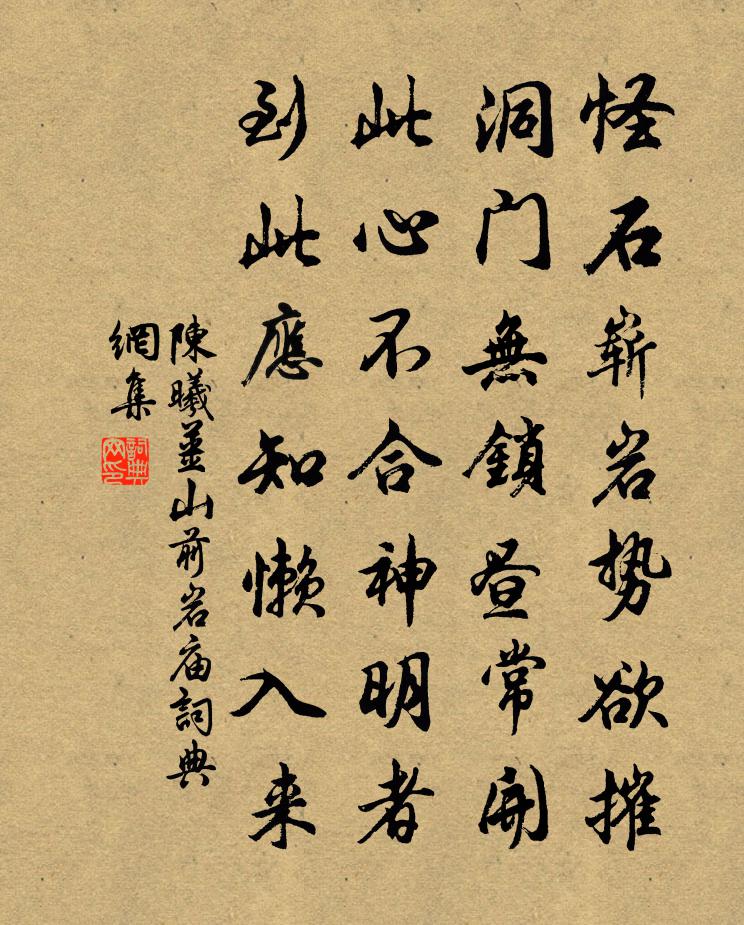 怪石嶄岩势欲摧
洞门無鎖昼常開
此心不合神明者
到此應知懒入来
陳曦薑山前岩庙詞典
網集
詞典
网印